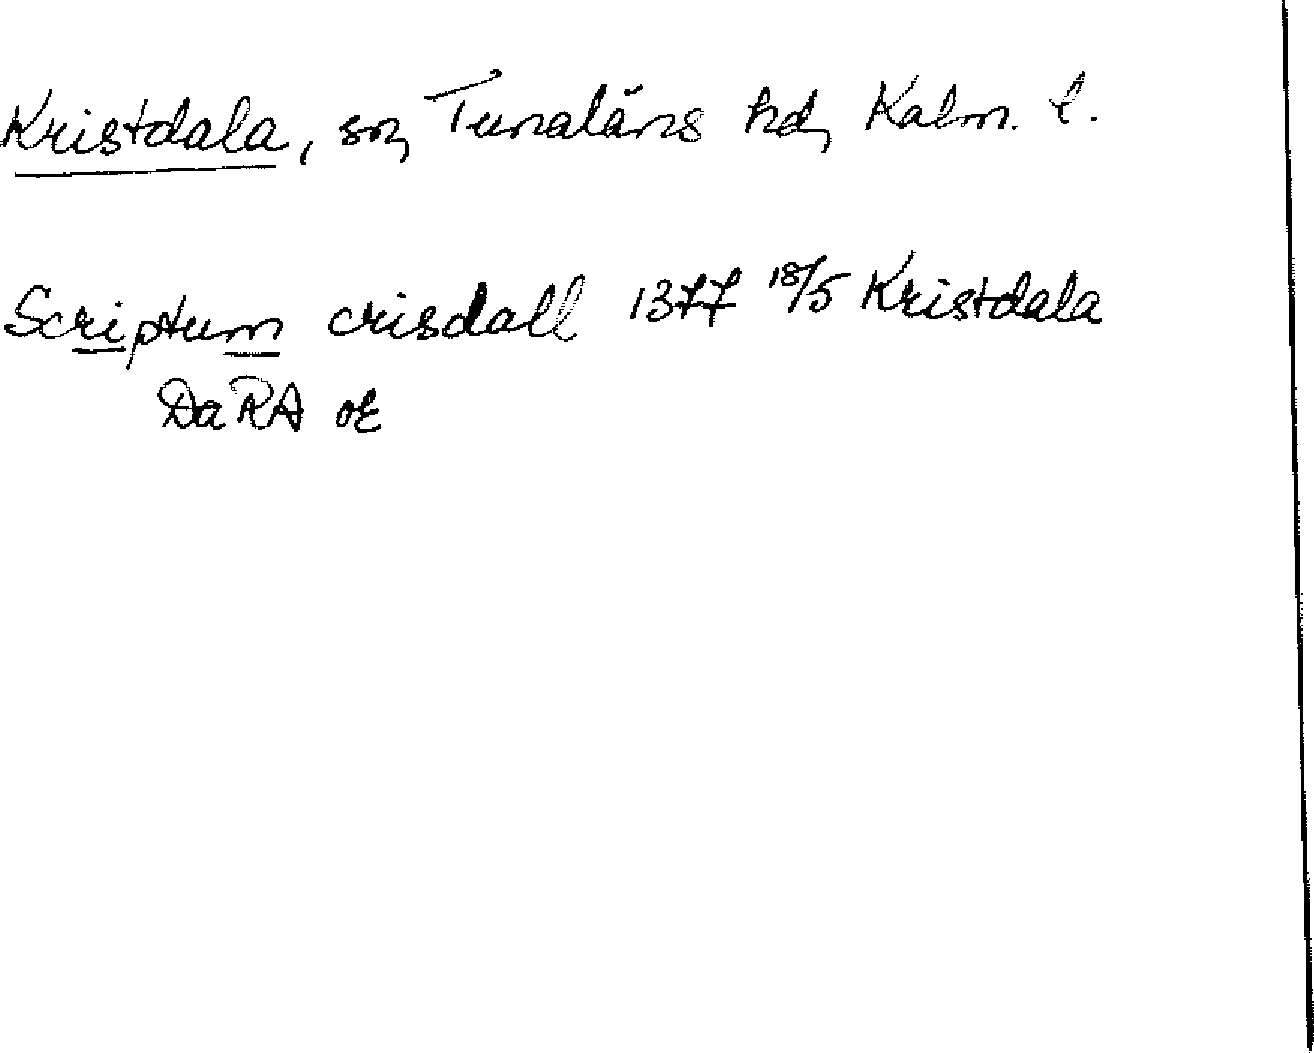 Kristdala, sn, Tunaläns hd, Kalm. l.
Scriptum crisdall 1377 18/5 Kristdala
DaRA or